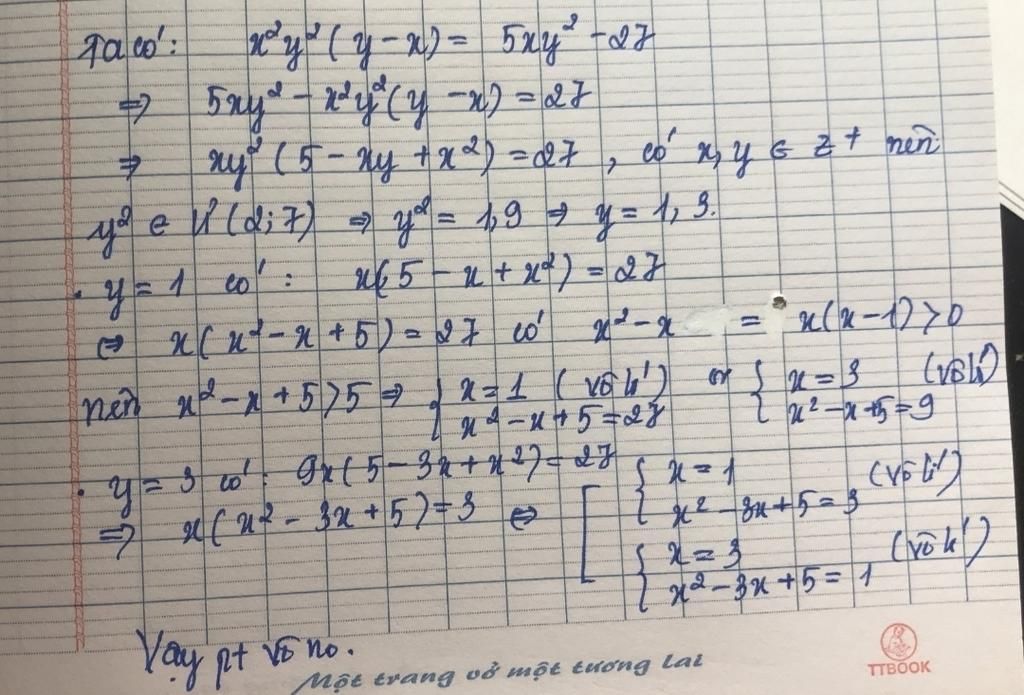 Ta có: x²y²(y-x) = 5xy² - 27
⇒ 5xy² - x²y²(y-x) = 27
⇒ xy²(5 - xy + x²) = 27, có x, y ∈ Z⁺ nên
y² ∈ Ư(2;7) ⇒ y² = 1,9 ⇒ y = 1, 3.
. y = 1 có: x(5 - x + x²) = 27
⇔ x(x² - x + 5) = 27 có x² - x = x(x-1) > 0
nên x² - x + 5 > 5 ⇒ { x = 1 (vô lí) or { x = 3 (vô lí)
x² - x + 5 = 27 x² - x + 5 = 9
. y = 3 có: 9x(5 - 3x + x²) = 27
⇒ x(x² - 3x + 5) = 3 ⇔ [ { x = 1 (vô lí)
x² - 3x + 5 = 3
{ x = 3 (vô lí)
x² - 3x + 5 = 1
Vậy pt vô no.
Một trang vở một tương lai
TTBOOK